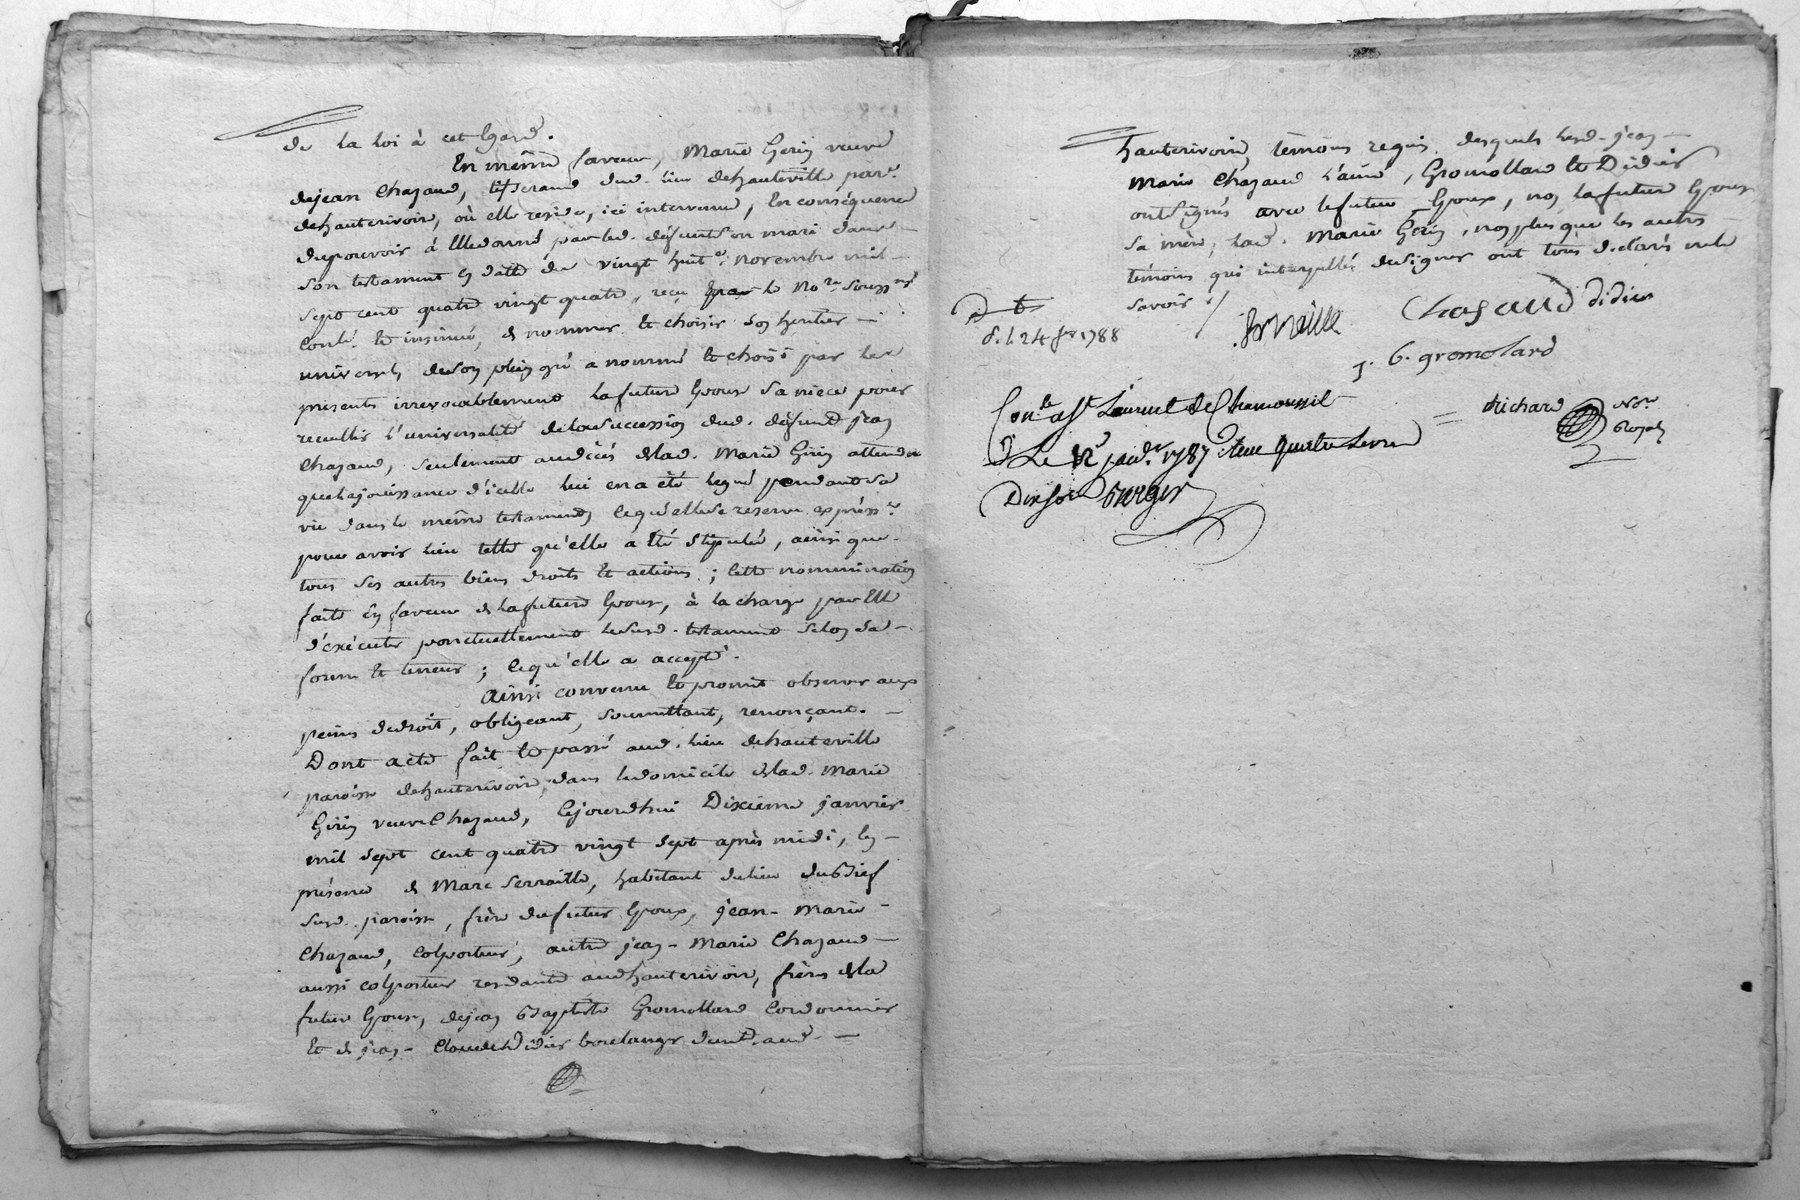 de la loi à cet Egard.
En même faveur, Marie Girin veuve
de jean Chazaud, tisserand dud. lieu dehauteville par.
dehauterivoire, où elle reside, ici intervenue, En conséquence
dupouvoir à Elledonné parled. défunt son mari dans
son testament en datte du vingt huit novembre mil
sept cent quatre vingt quatre, reçu par le No.re Souss.né
Conlé. et insinué, de nommer et choisir son heritier
universel, deson plein gré a nommé et choisi par les
presents irrevocablement lafuture Epouse sa niece pour
recueillir l'universalité delasuccession dud. défunt jean
Chazaud, seulement audécès delad. Marie Girin attendu
quelajouissance d'icelle lui en a été leguée pendant sa
vie dansle même testament, cequ'ellese reserve expréss.t
pour avoir lieu telle qu'elle a Eté stipulée, ainsi que
tous ses autres biens droits et actions ; cette nommination
faite en faveur de lafuture Epouse, à la charge par Elle
d'exécuter ponctuellement lesusd. testament selon sa
forme et teneur ; cequ'elle a accepté.
Ainsi convenu et promit observer aux
peines dedroit, obligeant, soumettant, renonçant.
Dont acte fait et passé aud. lieu dehauteville
paroisse dehauterivoire, dans ledomicile delad. Marie
Girin veuve Chazaud, Cejourdhui Dixieme janvier
mil sept cent quatre vingt sept après midi, En
présence de Marc Serraille, habitant dulieu duBief
susd. paroisse, frère dufutur Epoux, jean-Marie
Chazaud, colporteur, autre jean-Marie Chazaud
aussi colporteur residants aud hauterivoire, frères dela
future Epouse, dejean Baptiste Gromollard Cordonnier
et de jean-Claude Didier boulanger demt. aud.
hauterivoire, témoins requis desquels lesd. jean
Marie Chazaud l'ainé, Gromollard et Didier
ont signés avec lefutur Epoux, non lafuture Epouse
sa mère, lad. Marie Girin, non plus que les autres
témoins qui interpellés designer ont tous déclarés nele
savoir ./
Chasaud didier
d. l. 24 1788
J. B. gromolard
Con.lé a St Laurent de Chamousset
Le 12 janv.r 1787 Reçu quatre Livres
Dix sols
Richard No.re
Royal